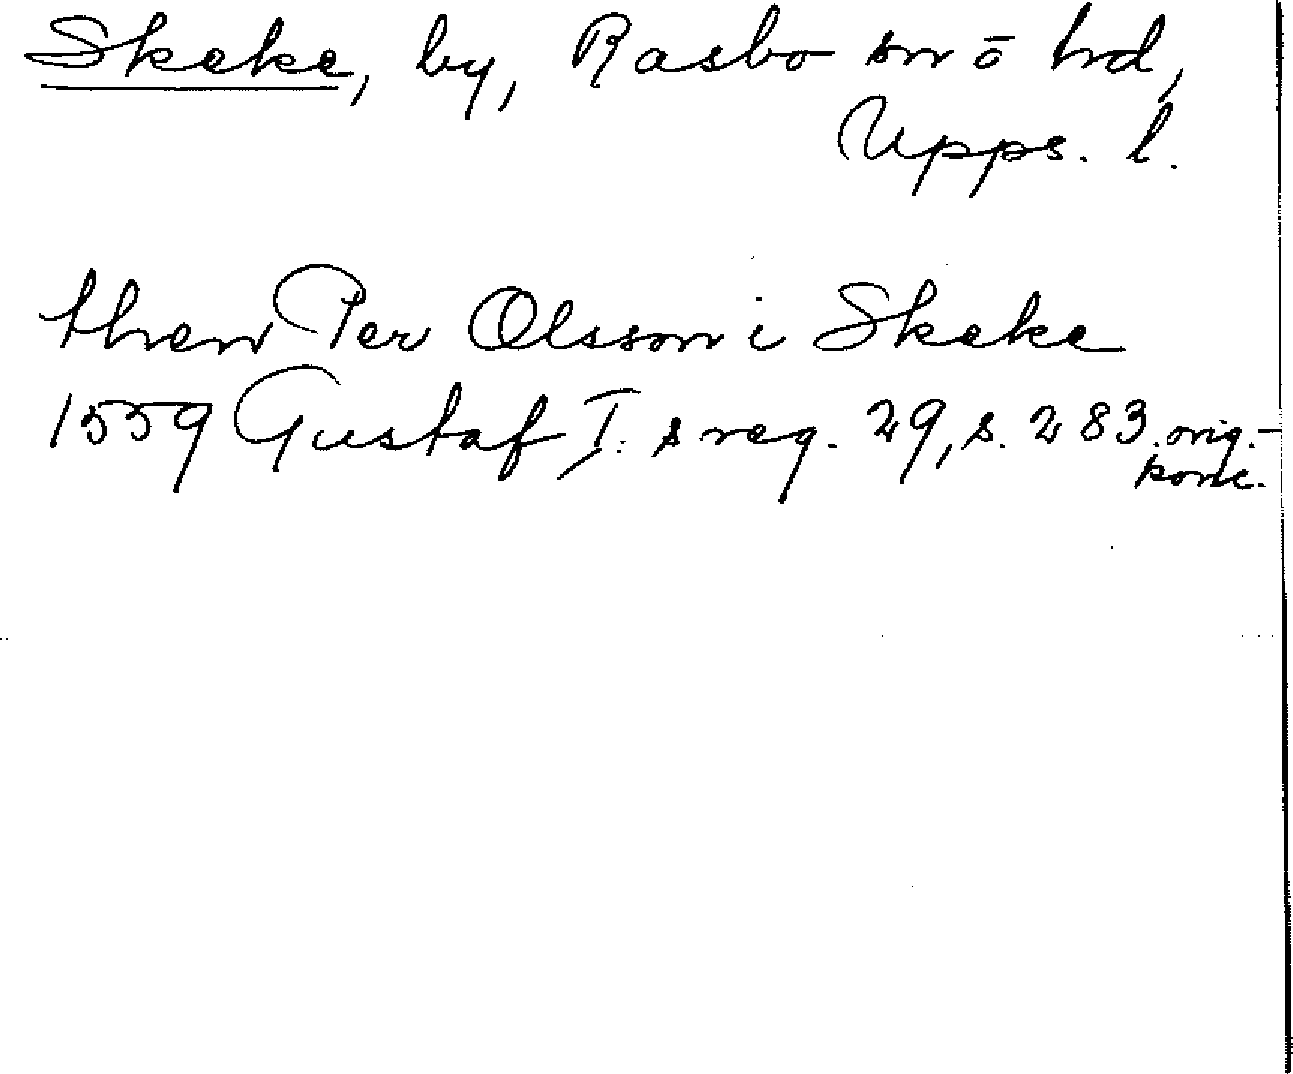 Skeke, by, Rasbo sn o hd,
Upps. l.
then Per Olsson i Skeke
1559 Gustaf I:s reg. 29, s. 283. orig.-
konc.